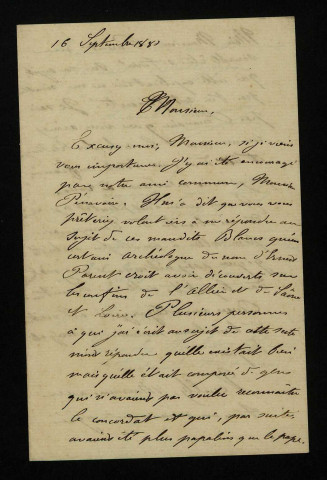 16 Septembre 188
Monsieur,
Excusez moi, Monsieur, si je viens
vous importuner. J'y ai été encouragé
par notre ami commun, Monsieur
Il m'a dit que vous vous
prêteriez volontiers à me répondre au
sujet de ces maudits Blancs qu'un
certain archéologue du nom d'
Parent croit avoir découverts sur
les confins de l'Allier et de Saône
et Loire. Plusieurs personnes
à qui j'ai écrit au sujet de cette secte
m'ont répondu qu'elle existait bien
mais qu'elle était composée de gens
qui n'avaient pas voulu reconnaître
le concordat et qui, par suite
avaient été plus papalins que le pape.